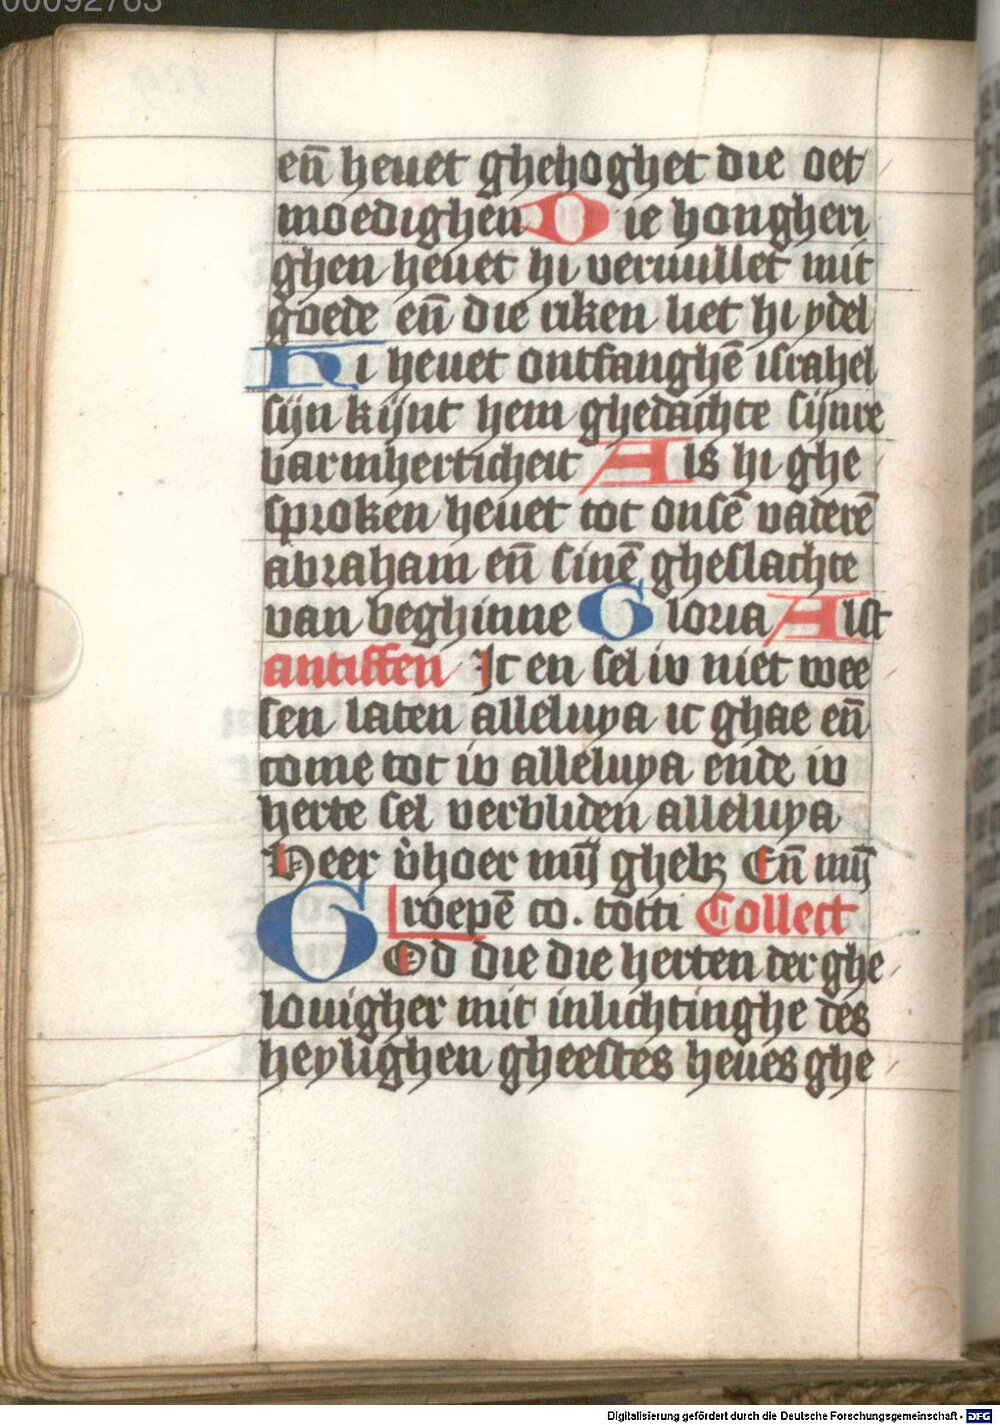 00092763
en̄ heuet ghehoghet die oet
moedighen Die hongheri
ghen heuet hi veruullet mit
goede en̄ die riken liet hi ydel
Hi heuet ontfanghē israhel
sijn kijnt hem ghedachte sijnre
barmherticheit Als hi ghe
sproken heuet tot onsē vaderē
abraham en̄ sinē gheslachte
van beghinne Gloria Alst
antiffen Ic en sel iv niet wee
sen laten alleluya ic ghae en̄
come tot iv alleluya ende iv
herte sel verbliden alleluya
Heer v̓hoer mijn̄ ghebꝫ En̄ mijn̄
roepē co. totti Collect
God die die herten der ghe
louigher mit inlichtinghe des
heylighen gheestes heues ghe
Digitalisierung gefördert durch die Deutsche Forschungsgemeinschaft - DFG